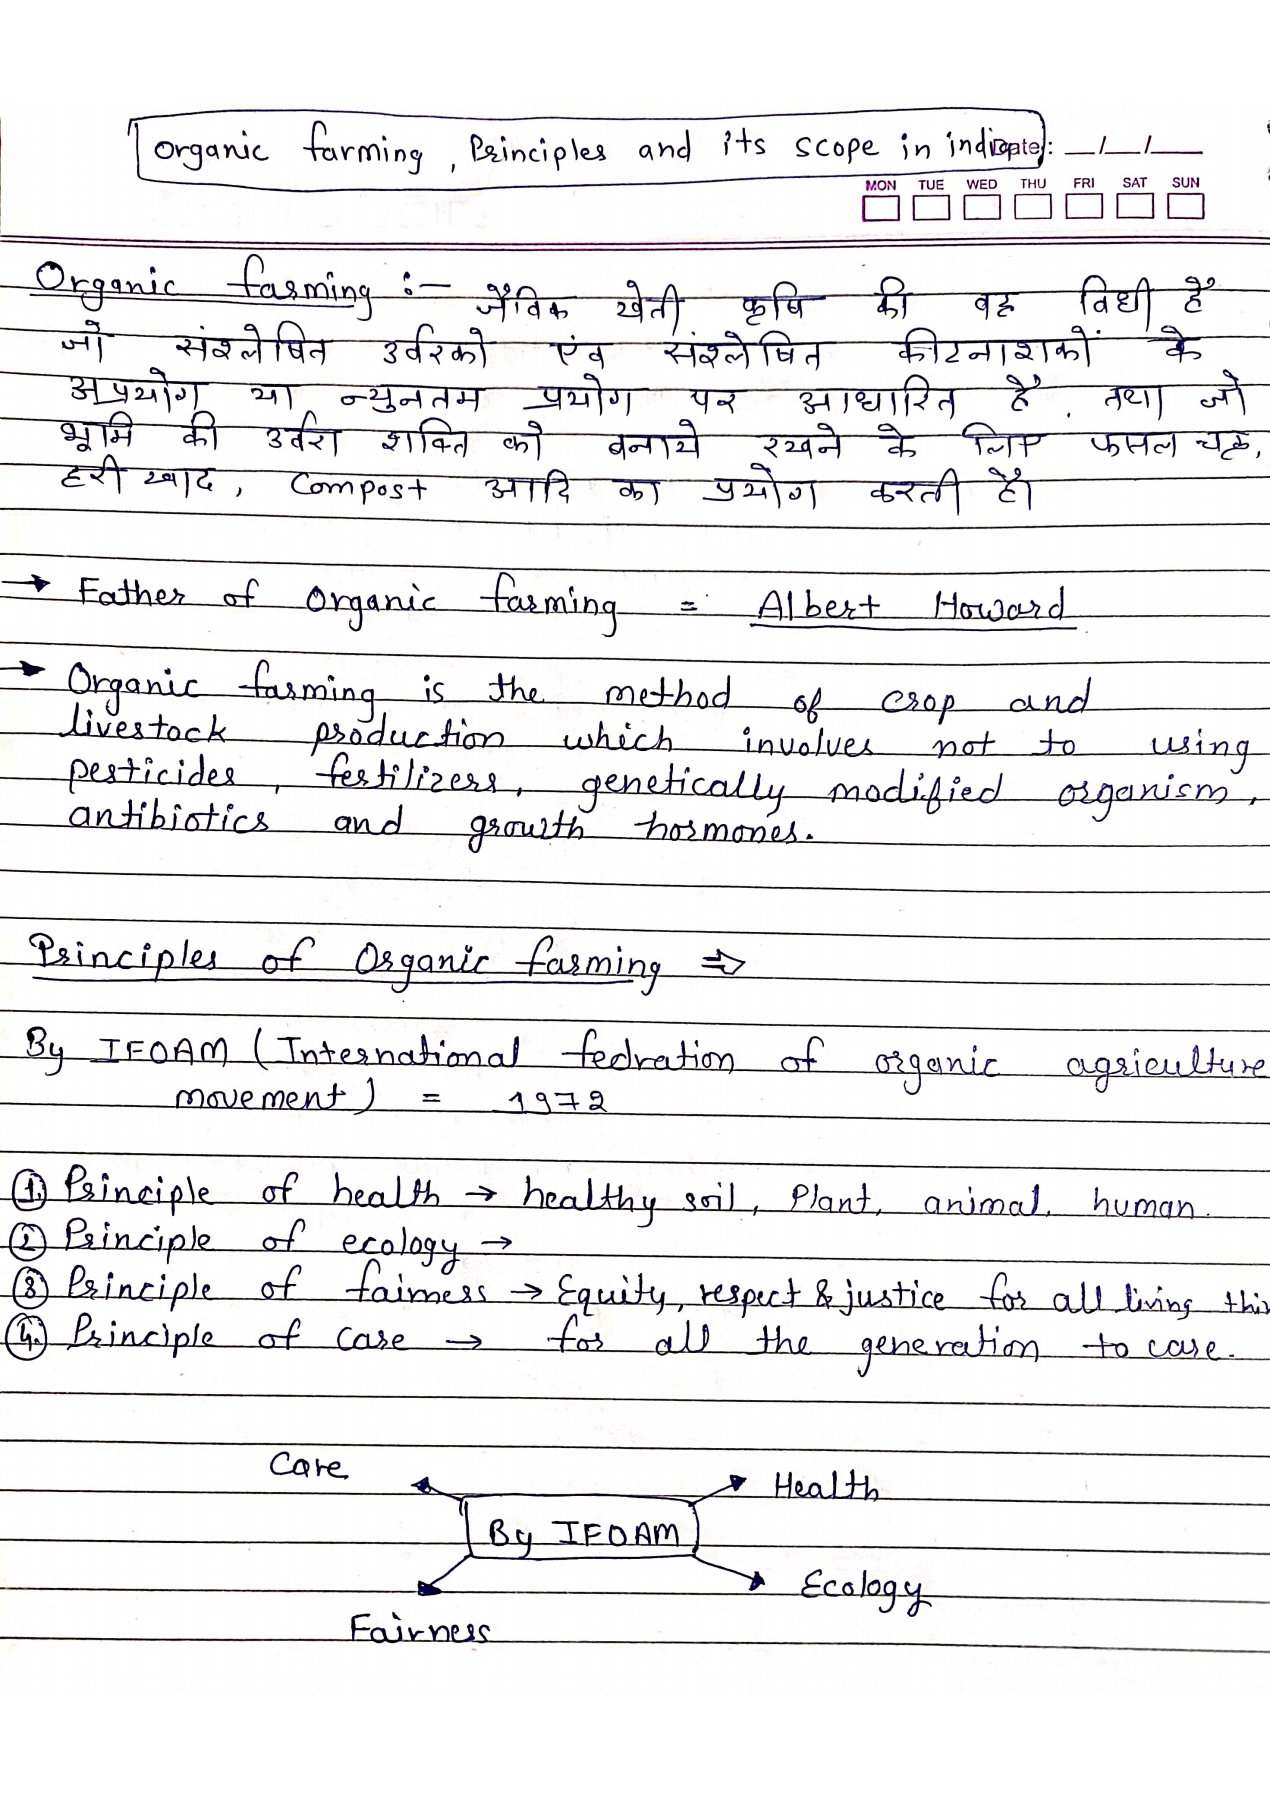 Organic farming, Principles and its scope in india
Date: __/__/__
MON TUE WED THU FRI SAT SUN
Organic farming :- जैविक खेती कृषि की वह विधी है
जो संश्लेषित उर्वरको एंव संश्लेषित कीटनाशकों के
अप्रयोग या न्युनतम प्रयोग पर आधारित है, तथा जो
भूमि की उर्वरा शक्ति को बनाये रखने के लिए फसल चक्र,
हरी खाद, Compost आदि का प्रयोग करती है।
→ Father of Organic farming = Albert Howard
→ Organic farming is the method of crop and
livestock production which involves not to using
pesticides, fertilizers, genetically modified organism,
antibiotics and growth hormones.
Principles of Organic farming ⇒
By IFOAM (International fedration of organic agriculture
movement) = 1972
1. Principle of health → healthy soil, Plant, animal, human.
2 Principle of ecology →
3 Principle of fairness → Equity, respect & justice for all living thin
4. Principle of care → for all the generation to care.
Care
Health
By IFOAM
Ecology
Fairness